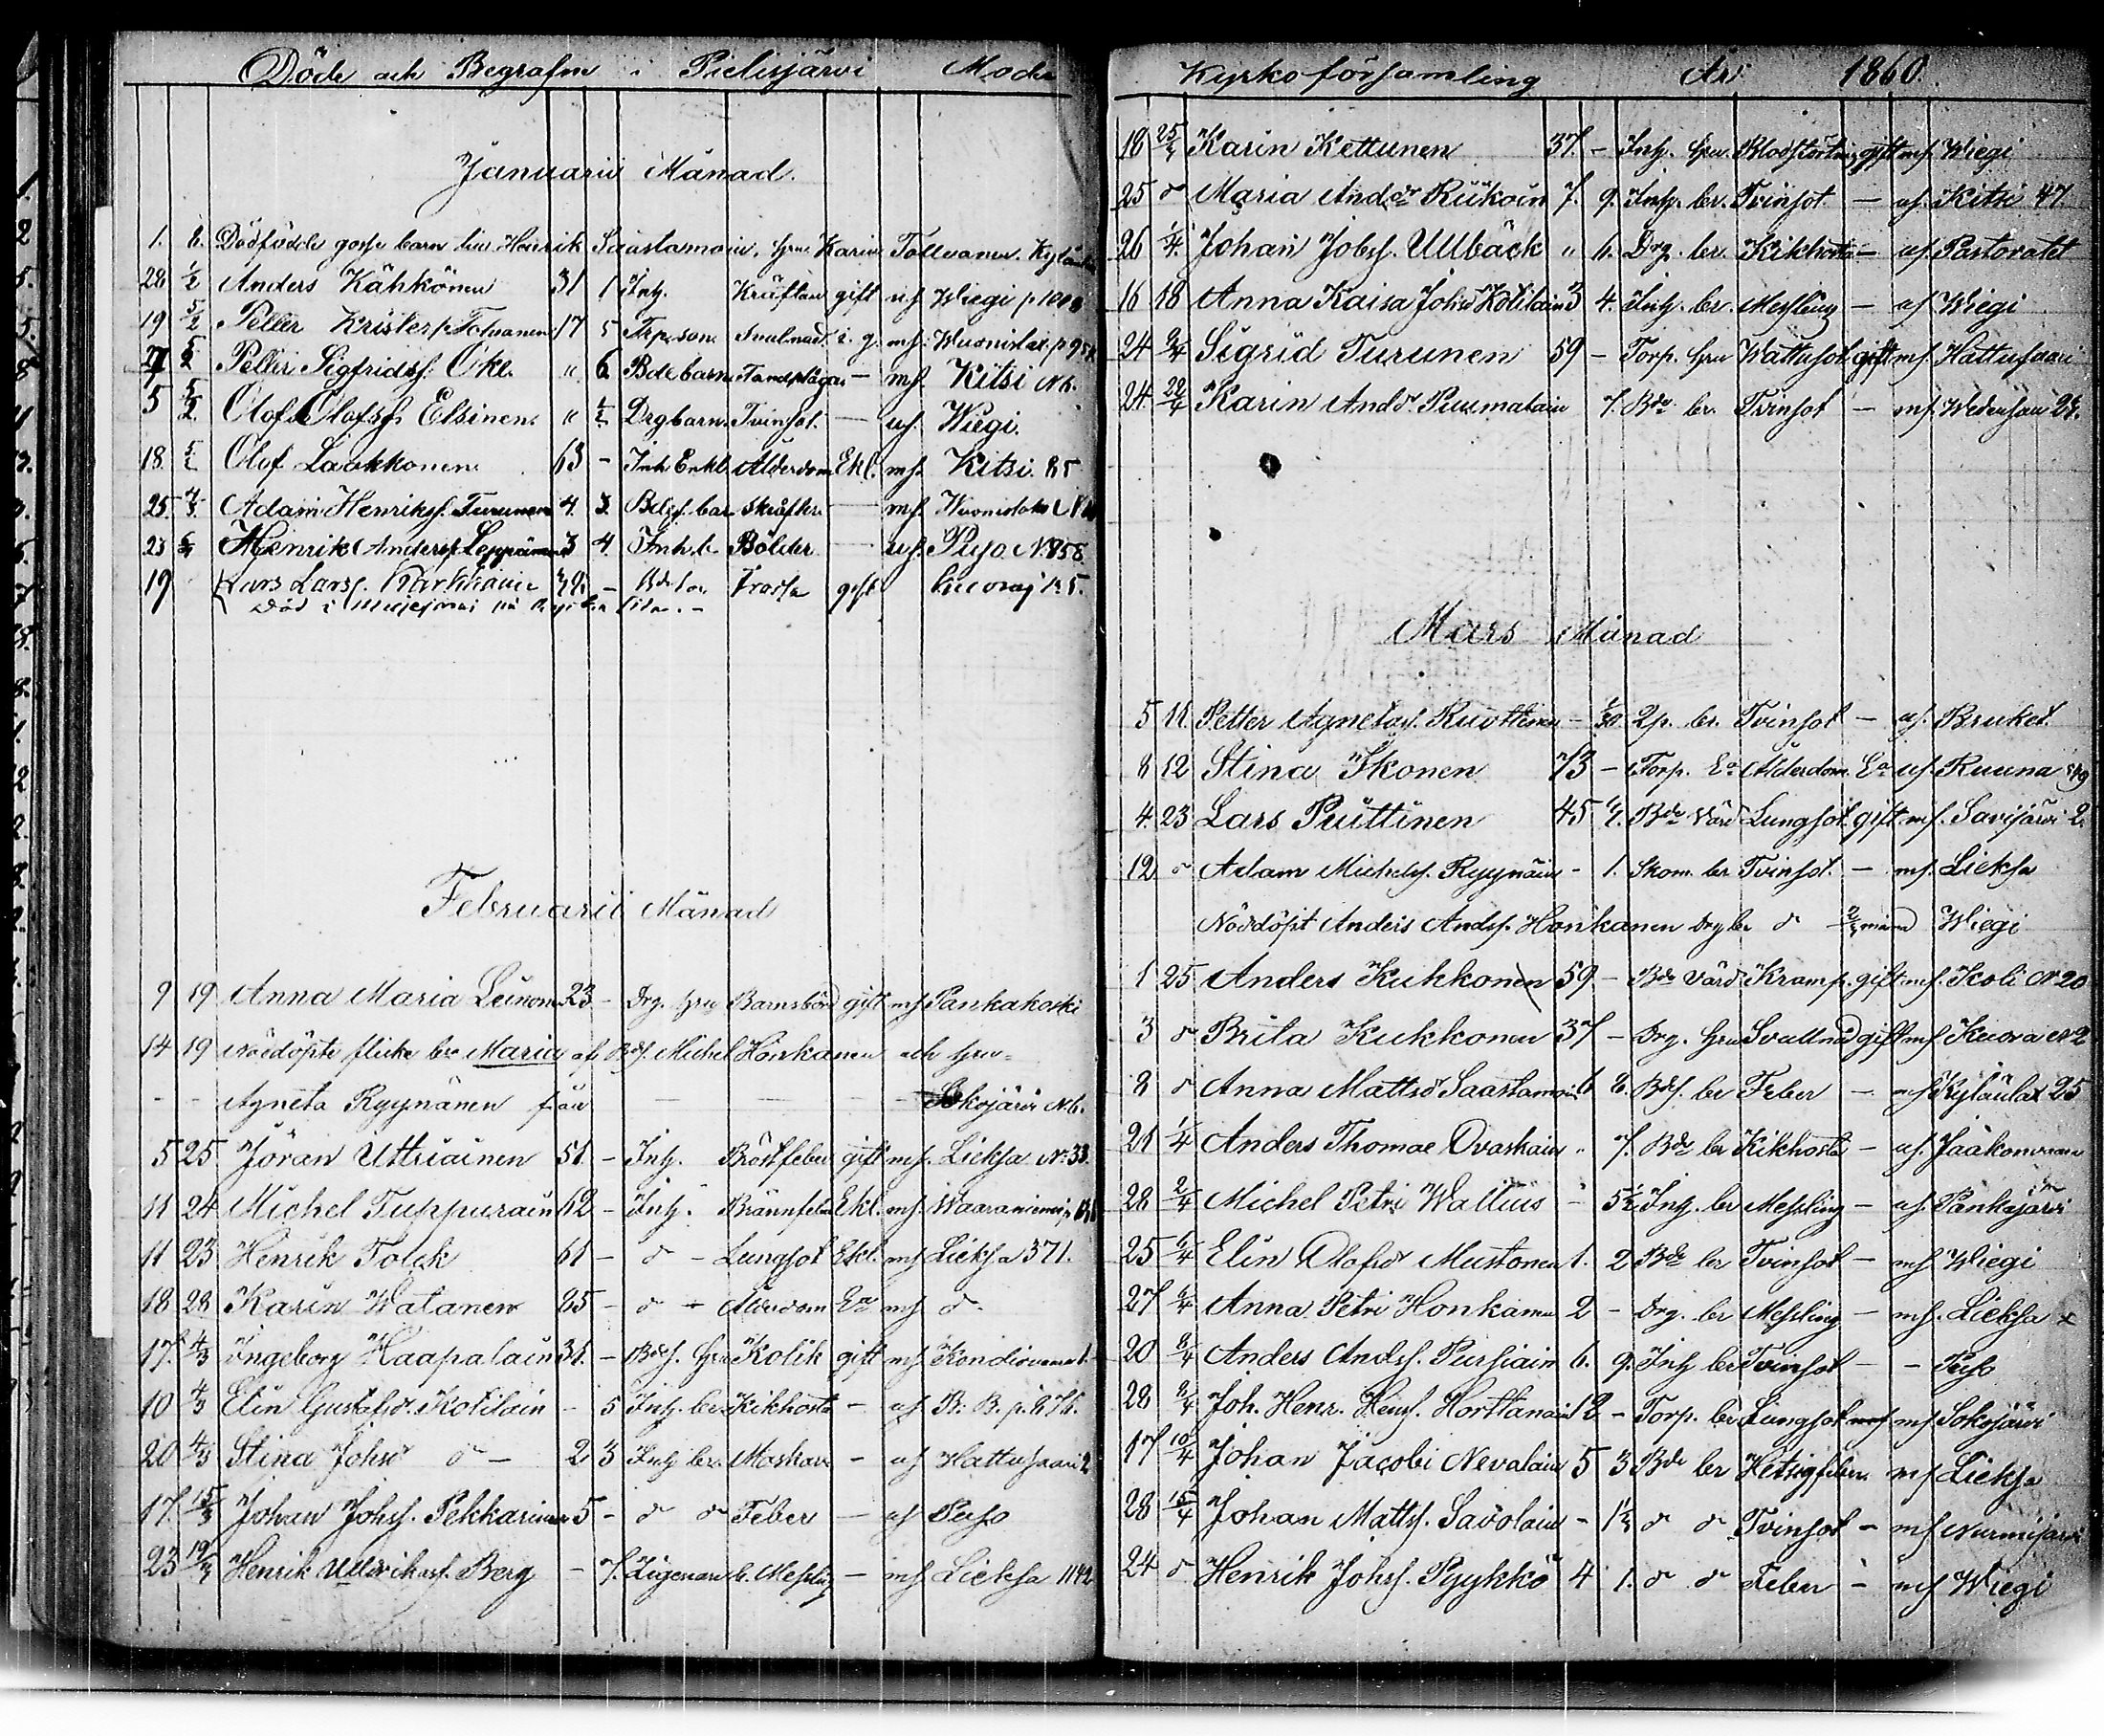 Döde och Begrafne i Pielisjärvi Moder
Januarii Månad.
1. 8. Dödfödde gosse barn Henrik Saastamoin, hu Karin Tolvanen. Kylän
28 1/2 Anders Kähkönen 31 1 Inh. Kräftan gift uf Wiegi p 1008
19 5/2 Petter Kristersf Tolvanen 17 5 Trp. son i. g. mf. Wuonislax p 9
27 5/2 Petter Sigfridsf. " 6 Bde barn Tandplågan – mf. Kitsi N 6.
5 5/2 Olof Olofsf. Elsinen " 1/2 Drg barn Tvinsot. – uf. Wiegi.
18 5/2 Olof Laakkonen 63 – Inh Enkl Ålderdom Ekl. mf. Kitsi. 85.
25. 4/3 Adam Henriksf. Turunen 4. 3. Bdes. bar – mf. Wuonislax N
23 Henrik Andersf Leppänen 3 4. Inh. b Bölder – uf. Puso N. 858
19 Lars Larsf. Karhkain – gift N. 5.
Död i på
Februarii Månad
9 19 Anna Maria Leinonen 23 – Drg. hru Barnsbörd gift mf Pankakoski
14 19 Nöddöpte flicke bn Maria af Bdf. Michel Honkanen och hru–
– – Agneta Ryynänen från – – – Sokojärvi N. 6.
5 25. Jöran Uttriainen 51. – Inh. Bröstfeber gift mf. Lieksa N. 33.
11 24 Michel Tuppurain 62 – Inh. Brännfeber Ekl. mf. Waaraniemi p
11 23 Henrik Tolck 61 – d – Lungsot Ekl. mf Lieksa 371.
18 28 Karin Watanen 85 – d – Ålderdom Ea mf d.
17. 4/3 Ingeborg Haapalain 31. – Bdf. hru Kolik gift mf. Kondiovaara 1.
10 4/3 Elin Gustafsd. Kotilain – 5 Inh. bn Kikhosta – uf B. B. p. 876.
20 4/3 Stina Johsd d – 2 3 Inh bn. Maskar – uf Hattusaari 2
17. 15/3 Johan Johsf. Pekkarinen 5 – d d Feber – uf Puso
23 19/3 Henrik Ullrikasf. Berg – 7. Zigenare b. Messling – mf Lieksa 1142
Kyrko församling År 1860.
18 25/3 Karin Kettunen 37. – Inh. hru. Blodstörtning gift mf. Wiegi
25 d Maria Andsdr Kiikoin 7. 9. Inh. bn. Tvinsot – uf. Kitsi 47.
26 1/4. Johan Jobsf. Ullbäck " 6. Drg. bn. Kikhosta – uf. Pastoratet
16 18 Anna Kaisa Johsd Kotilain 3 4. Inh. bn. Messling – uf Wiegi
24 9/4 Sigrid Turunen 59 – Torp. hru Wattusot. gift mf. Hattusaari
24. 22/4 Karin Andsd. Puumalain 7. Bde bn. Tvinsot – mf. Wedensuu 24.
Mars Månad
5 11. Petter Agnetasf. Ruottinen – 1/30 2p. bn. Tvinsot – uf. Bruket.
8 12 Stina Ikonen 73 – Torp. Ea Ålderdom Ea uf. Ruuna 549
4. 23 Lars Piittinen 45 4. Bde värd Lungsot. gift mf. Savijärvi 2.
12 d Adam Michelsf. Ryynäin – 1. Skom. bn Tvinsot. – mf. Lieksa
Nöddöpt Anders Andsf. Honkanen Drg bn d Wiegi
1 25 Anders Kukkonen 59 – Bde värd Kramp. gift mf. Koli N 20
3 d Brita Kukkonen 37 – Drg. hru Svullnad gift mf Kuora N 2
8 d Anna Mattsd Saastamoin 6 8. Bdf. bn Feber – mf Kylänlax 25
21 1/4 Anders Thomae Ovaskain " 7. Bde bn Kikhosta – uf. Jaakonvaara
28 2/4 Michel Petri Wallius – 5 1/2 Inh. bn Messling – uf. Pankajärvi
25 6/4 Elin Olofsd Mustonen 1. 2 Bde bn Tvinsot – mf Wiegi
27 6/4 Anna Petri Honkanen 2 – Drg. bn Messling – mf. Lieksa x
20 8/4 Anders Andsf. Pursiain 6. 9. Inh bn Tvinsot – – Puso
28 8/4 Joh. Henr. Hensf. Horttanain 12 – Torp. bn Lungsot mf mf Sokojärvi
17 10/4 Johan Jacobi Nevalain 5 3 Bde bn Hetsigfeber mf Lieksa
28 15/4 Johan Mattsf. Savolain – 1 1/2 d d Tvinsot – mf Nurmijärvi
24 d Henrik Johsf. Pyykkö 4 1. d d Feber – mf Wiegi